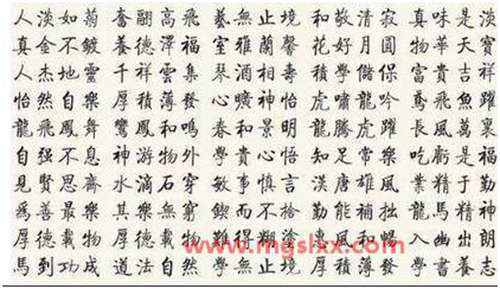 人淡如菊 奮翮高飛 藝無止境 和敬清寂 真味是淡
真金不鍍 養德澤福 室雅蘭馨 花好月圓 物華天寶
人杰地靈 千祥雲集 琴酒 壽 學儲 富貴吉祥
怡然自樂 厚積薄發 心曠神怡 虎嘯龍吟 鳶飛魚躍
龍飛鳳舞 鸞鳳和鳴 春和景明 龍騰虎躍 長風萬裏
自强不息 神游物外 貴心悟 知足常樂 吃虧是福
見賢思齋 水滴石穿 敏事慎言 漢唐雄風 業精于勤
爲善最樂 其樂無窮 鍥而不捨 勤能補拙 龍馬精神
厚德載物 厚德載物 難得糊塗 惠風和暢 入幽出朗
馬到功成 道法自然 學無止境 厚積薄發 學書養志
www.mgslxx.com